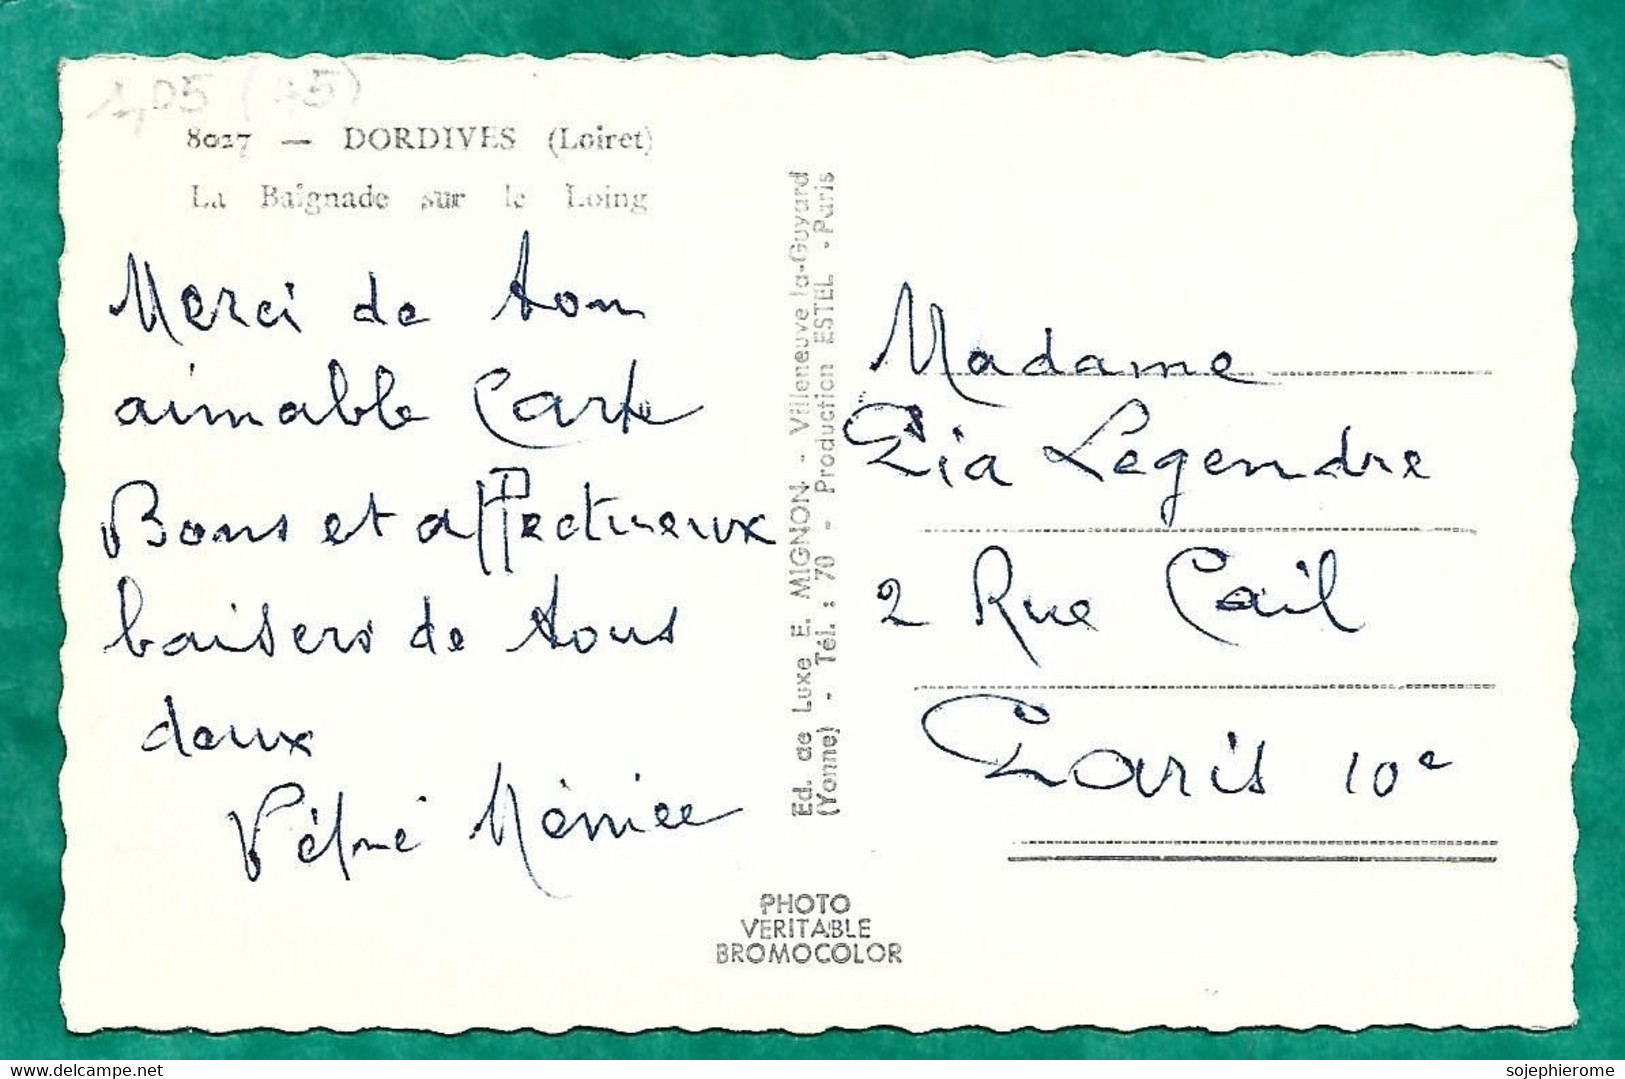 1,05 (45)
8027 — DORDIVES (Loiret)
La Baignade sur le Loing
Merci de ton
aimable Carte
Bons et affectueux
baisers de tous
deux
Ed. de Luxe E. MIGNON - Villeneuve-la-Guyard
(Yonne) - Tél. : 70 - Production ESTEL - Paris
PHOTO
VERITABLE
BROMOCOLOR
Madame
Pia Legendre
2 Rue Cail
Paris 10e
sojephierome